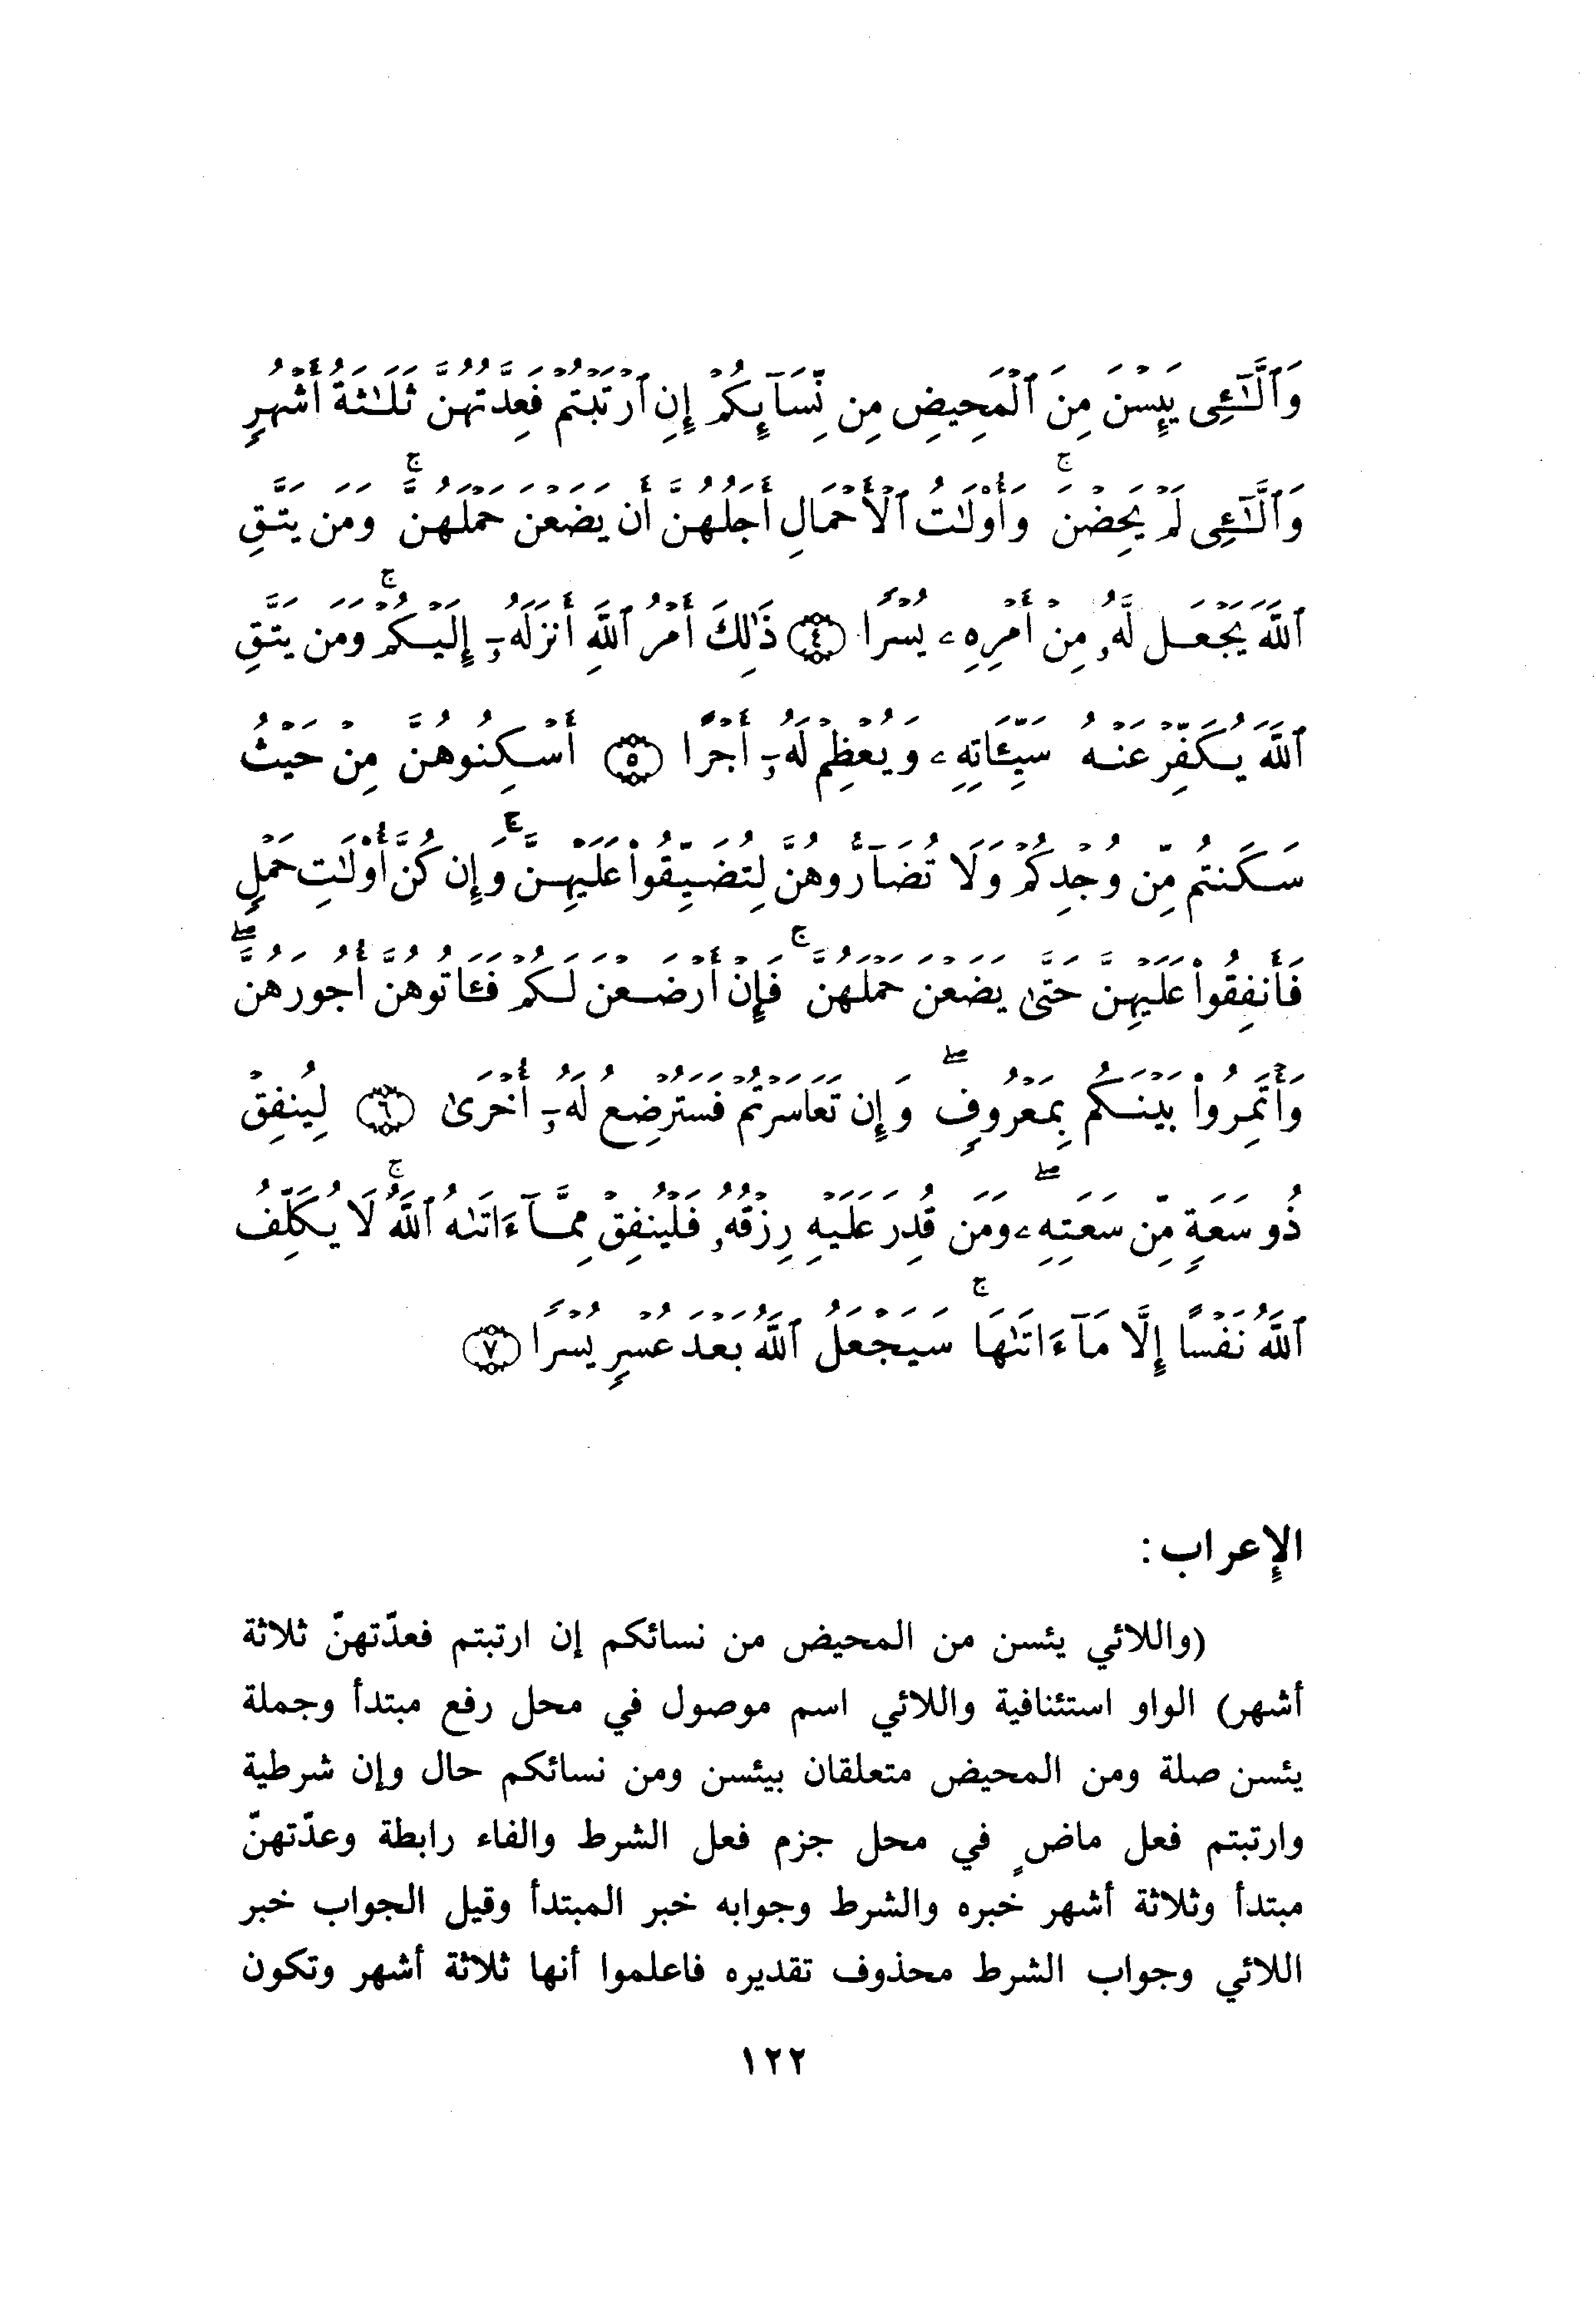 وَٱلَّـٰٓـِٔى يَئِسْنَ مِنَ ٱلْمَحِيضِ مِن نِّسَآئِكُمْ إِنِ ٱرْتَبْتُمْ فَعِدَّتُهُنَّ ثَلَـٰثَةُ أَشْهُرٍ
وَٱلَّـٰٓـِٔى لَمْ يَحِضْنَ ۚ وَأُو۟لَـٰتُ ٱلْأَحْمَالِ أَجَلُهُنَّ أَن يَضَعْنَ حَمْلَهُنَّ ۚ وَمَن يَتَّقِ
ٱللَّهَ يَجْعَل لَّهُۥ مِنْ أَمْرِهِۦ يُسْرًا ﴿٤﴾ ذَٰلِكَ أَمْرُ ٱللَّهِ أَنزَلَهُۥٓ إِلَيْكُمْ ۚ وَمَن يَتَّقِ
ٱللَّهَ يُكَفِّرْ عَنْهُ سَيِّـَٔاتِهِۦ وَيُعْظِمْ لَهُۥٓ أَجْرًا ﴿٥﴾ أَسْكِنُوهُنَّ مِنْ حَيْثُ
سَكَنتُم مِّن وُجْدِكُمْ وَلَا تُضَآرُّوهُنَّ لِتُضَيِّقُوا۟ عَلَيْهِنَّ ۚ وَإِن كُنَّ أُو۟لَـٰتِ حَمْلٍ
فَأَنفِقُوا۟ عَلَيْهِنَّ حَتَّىٰ يَضَعْنَ حَمْلَهُنَّ ۚ فَإِنْ أَرْضَعْنَ لَكُمْ فَـَٔاتُوهُنَّ أُجُورَهُنَّ ۖ
وَأْتَمِرُوا۟ بَيْنَكُم بِمَعْرُوفٍ ۖ وَإِن تَعَاسَرْتُمْ فَسَتُرْضِعُ لَهُۥٓ أُخْرَىٰ ﴿٦﴾ لِيُنفِقْ
ذُو سَعَةٍ مِّن سَعَتِهِۦ ۖ وَمَن قُدِرَ عَلَيْهِ رِزْقُهُۥ فَلْيُنفِقْ مِمَّآ ءَاتَىٰهُ ٱللَّهُ ۚ لَا يُكَلِّفُ
ٱللَّهُ نَفْسًا إِلَّا مَآ ءَاتَىٰهَا ۚ سَيَجْعَلُ ٱللَّهُ بَعْدَ عُسْرٍ يُسْرًا ﴿٧﴾
الإِعراب :
(واللائي يئسن من المحيض من نسائكم إن ارتبتم فعدّتهنّ ثلاثة
أشهر) الواو استئنافية واللائي اسم موصول في محل رفع مبتدأ وجملة
يئسن صلة ومن المحيض متعلقان بيئسن ومن نسائكم حال وإن شرطية
وارتبتم فعل ماضٍ في محل جزم فعل الشرط والفاء رابطة وعدّتهنّ
مبتدأ وثلاثة أشهر خبره والشرط وجوابه خبر المبتدأ وقيل الجواب خبر
اللائي وجواب الشرط محذوف تقديره فاعلموا أنها ثلاثة أشهر وتكون
١٢٢